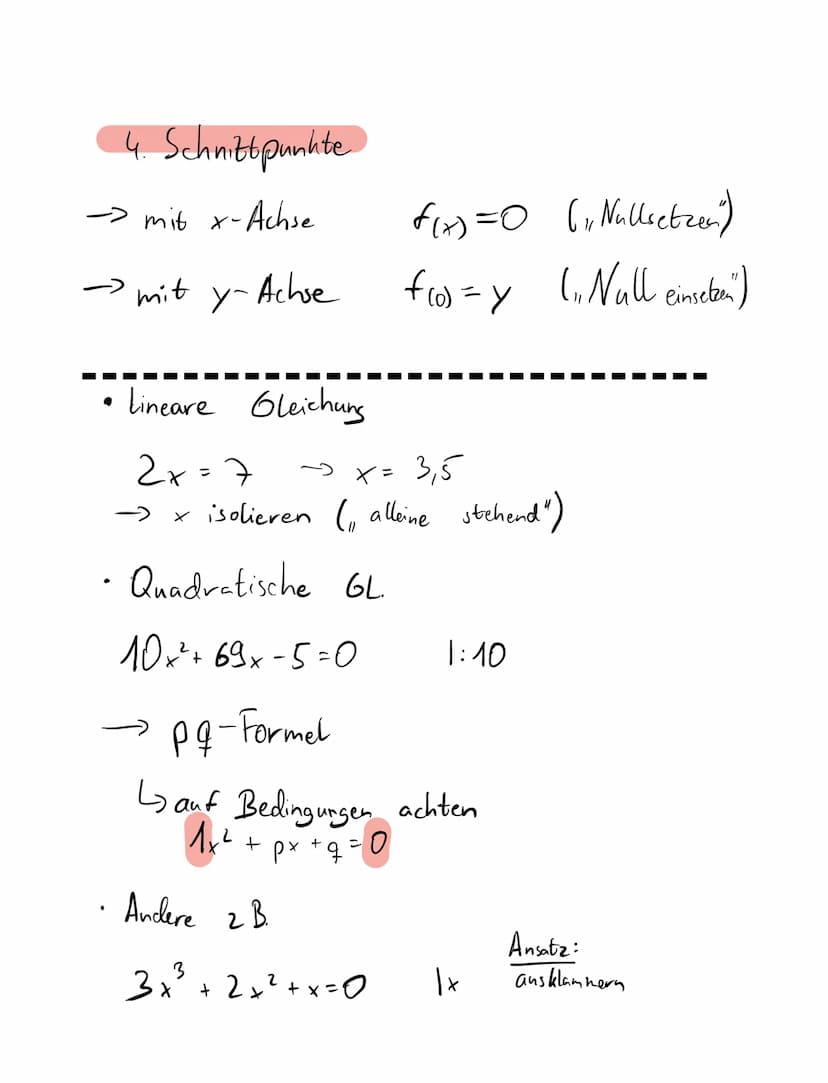 4. Schnittpunkte
→ mit x-Achse f(x)=0 („Nullsetzen")
→ mit y-Achse f(0)=y („Null einsetzen")
• Lineare Gleichung
2x = 7 → x = 3,5
→ x isolieren („alleine stehend")
• Quadratische GL.
10x²+ 69x - 5 = 0 |:10
→ pq-Formel
↳ auf Bedingungen achten
1x² + px + q = 0
• Andere z B.
3x³ + 2x² + x = 0 |x Ansatz:
ausklammern